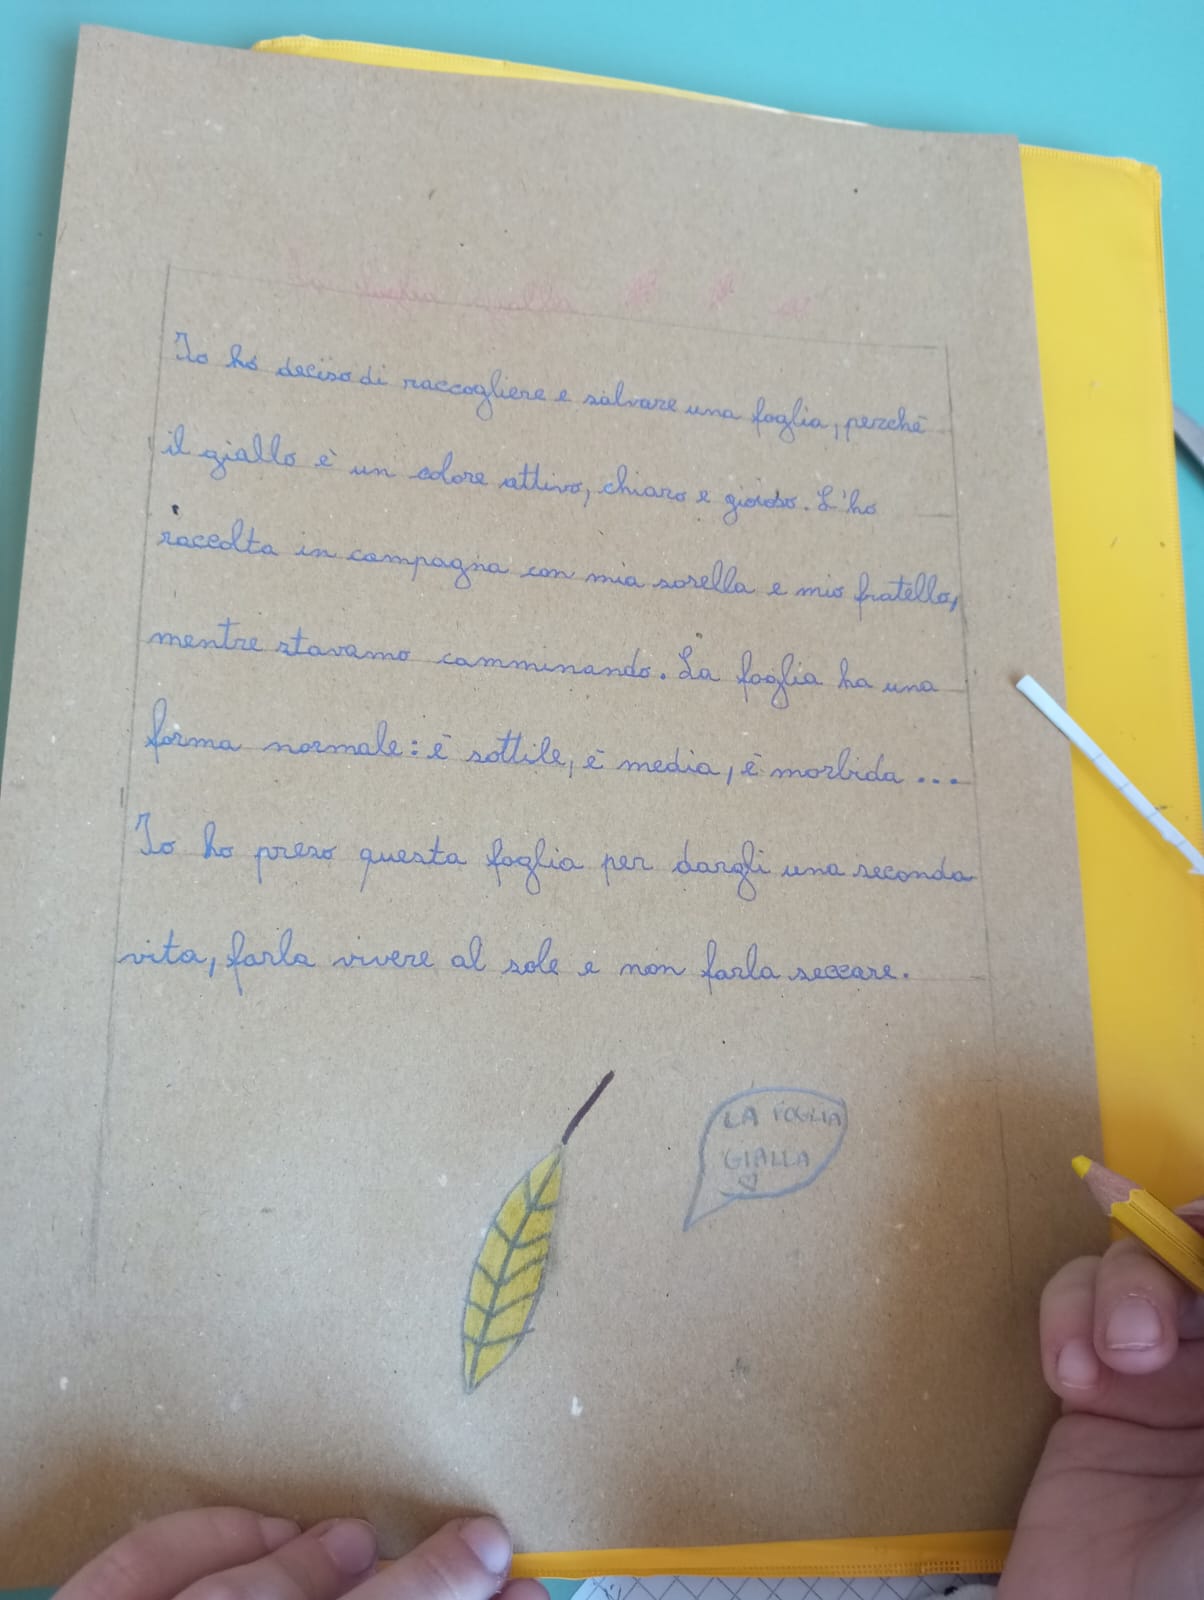 La foglia gialla
Io ho deciso di raccogliere e salvare una foglia, perchè
il giallo è un colore attivo, chiaro e gioioso. L'ho
raccolta in campagna con mia sorella e mio fratello,
mentre stavamo camminando. La foglia ha una
forma normale: è sottile, è media, è morbida ...
Io ho preso questa foglia per dargli una seconda
vita, farla vivere al sole e non farla seccare.
LA FOGLIA
GIALLA